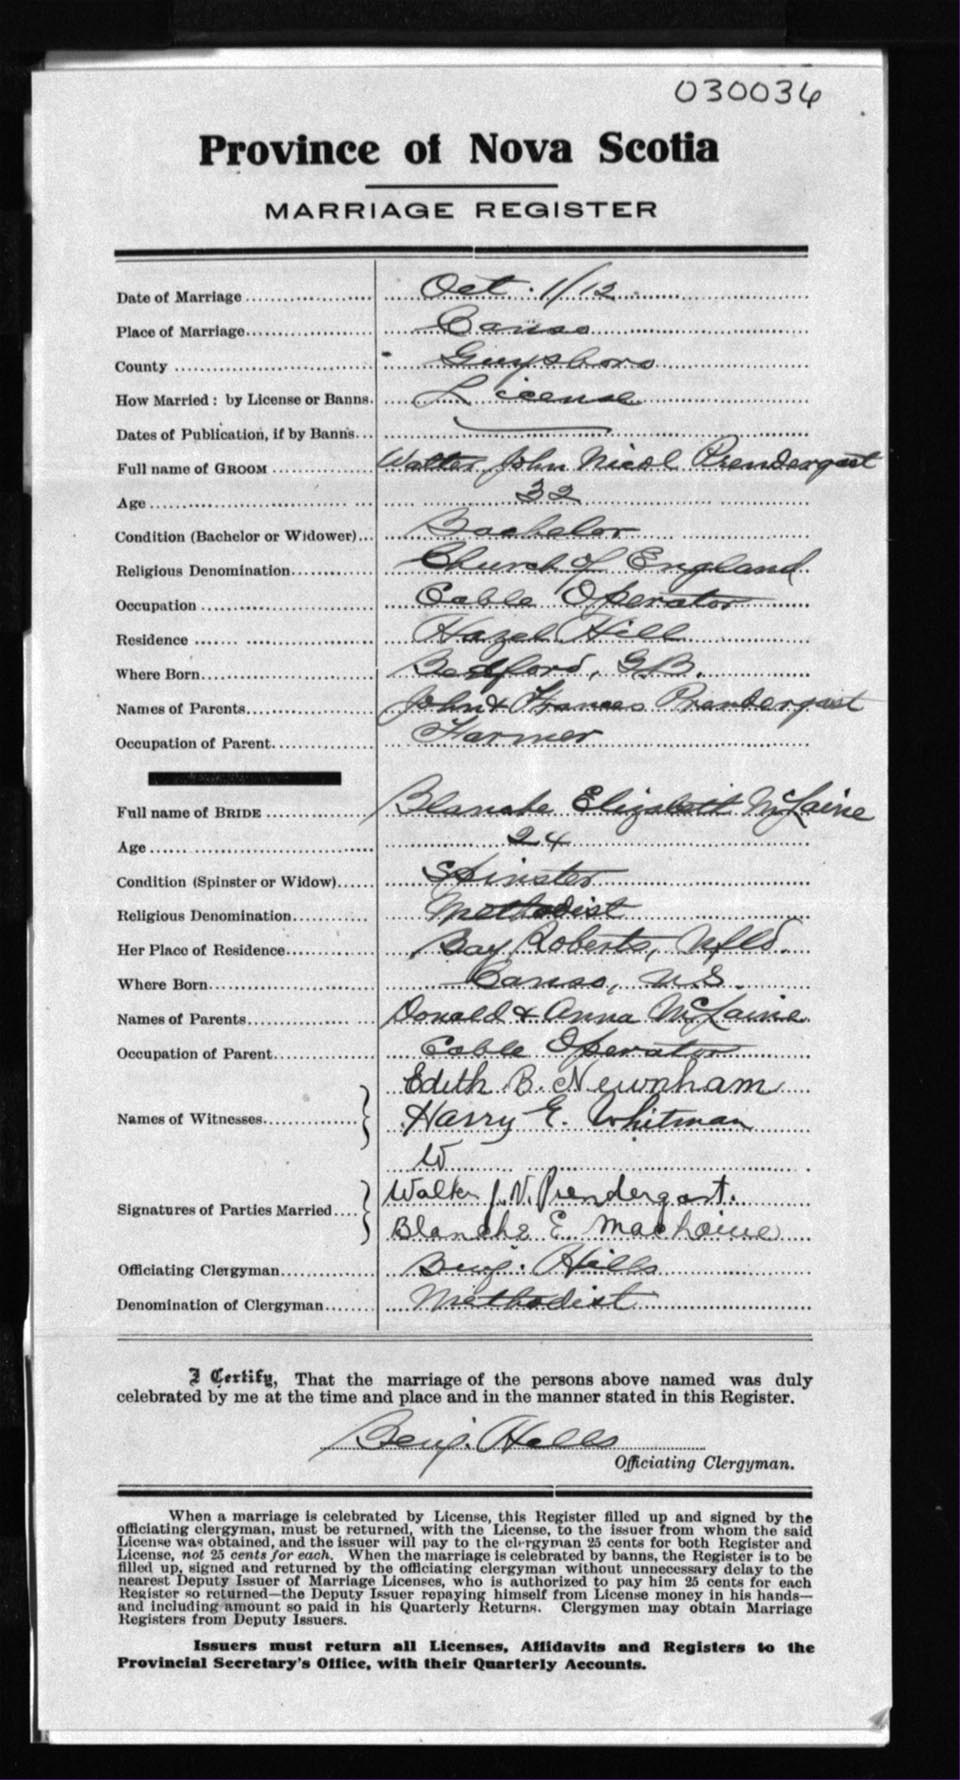 030034
Province of Nova Scotia
MARRIAGE REGISTER
Date of Marriage Oct. 1/12
Place of Marriage Canso
County Guysboro
How Married: by License or Banns. License
Dates of Publication, if by Banns
Full name of GROOM Walter John Nicol Prendergast
Age 32
Condition (Bachelor or Widower) Bachelor
Religious Denomination Church of England
Occupation Cable Operator
Residence Hazel Hill
Where Born Bedford, G.B.
Names of Parents John & Frances Prendergast
Occupation of Parent Farmer
Full name of BRIDE Blanche Elizabeth McLaine
Age 24
Condition (Spinster or Widow) Spinster
Religious Denomination Methodist
Her Place of Residence Bay Roberts, Nfld.
Where Born Canso, N.S.
Names of Parents Donald & Anna McLaine
Occupation of Parent Cable Operator
Edith B. Newnham
Names of Witnesses Harry E. Whitman
W
Signatures of Parties Married Walter J. N. Prendergast.
Blanche E. MacLaine
Officiating Clergyman Benj. Hills
Denomination of Clergyman Methodist
I Certify, That the marriage of the persons above named was duly
celebrated by me at the time and place and in the manner stated in this Register.
Benj. Hills
Officiating Clergyman.
When a marriage is celebrated by License, this Register filled up and signed by the
officiating clergyman, must be returned, with the License, to the issuer from whom the said
License was obtained, and the issuer will pay to the clergyman 25 cents for both Register and
License, not 25 cents for each. When the marriage is celebrated by banns, the Register is to be
filled up, signed and returned by the officiating clergyman without unnecessary delay to the
nearest Deputy Issuer of Marriage Licenses, who is authorized to pay him 25 cents for each
Register so returned—the Deputy Issuer repaying himself from License money in his hands—
and including amount so paid in his Quarterly Returns. Clergymen may obtain Marriage
Registers from Deputy Issuers.
Issuers must return all Licenses, Affidavits and Registers to the
Provincial Secretary's Office, with their Quarterly Accounts.